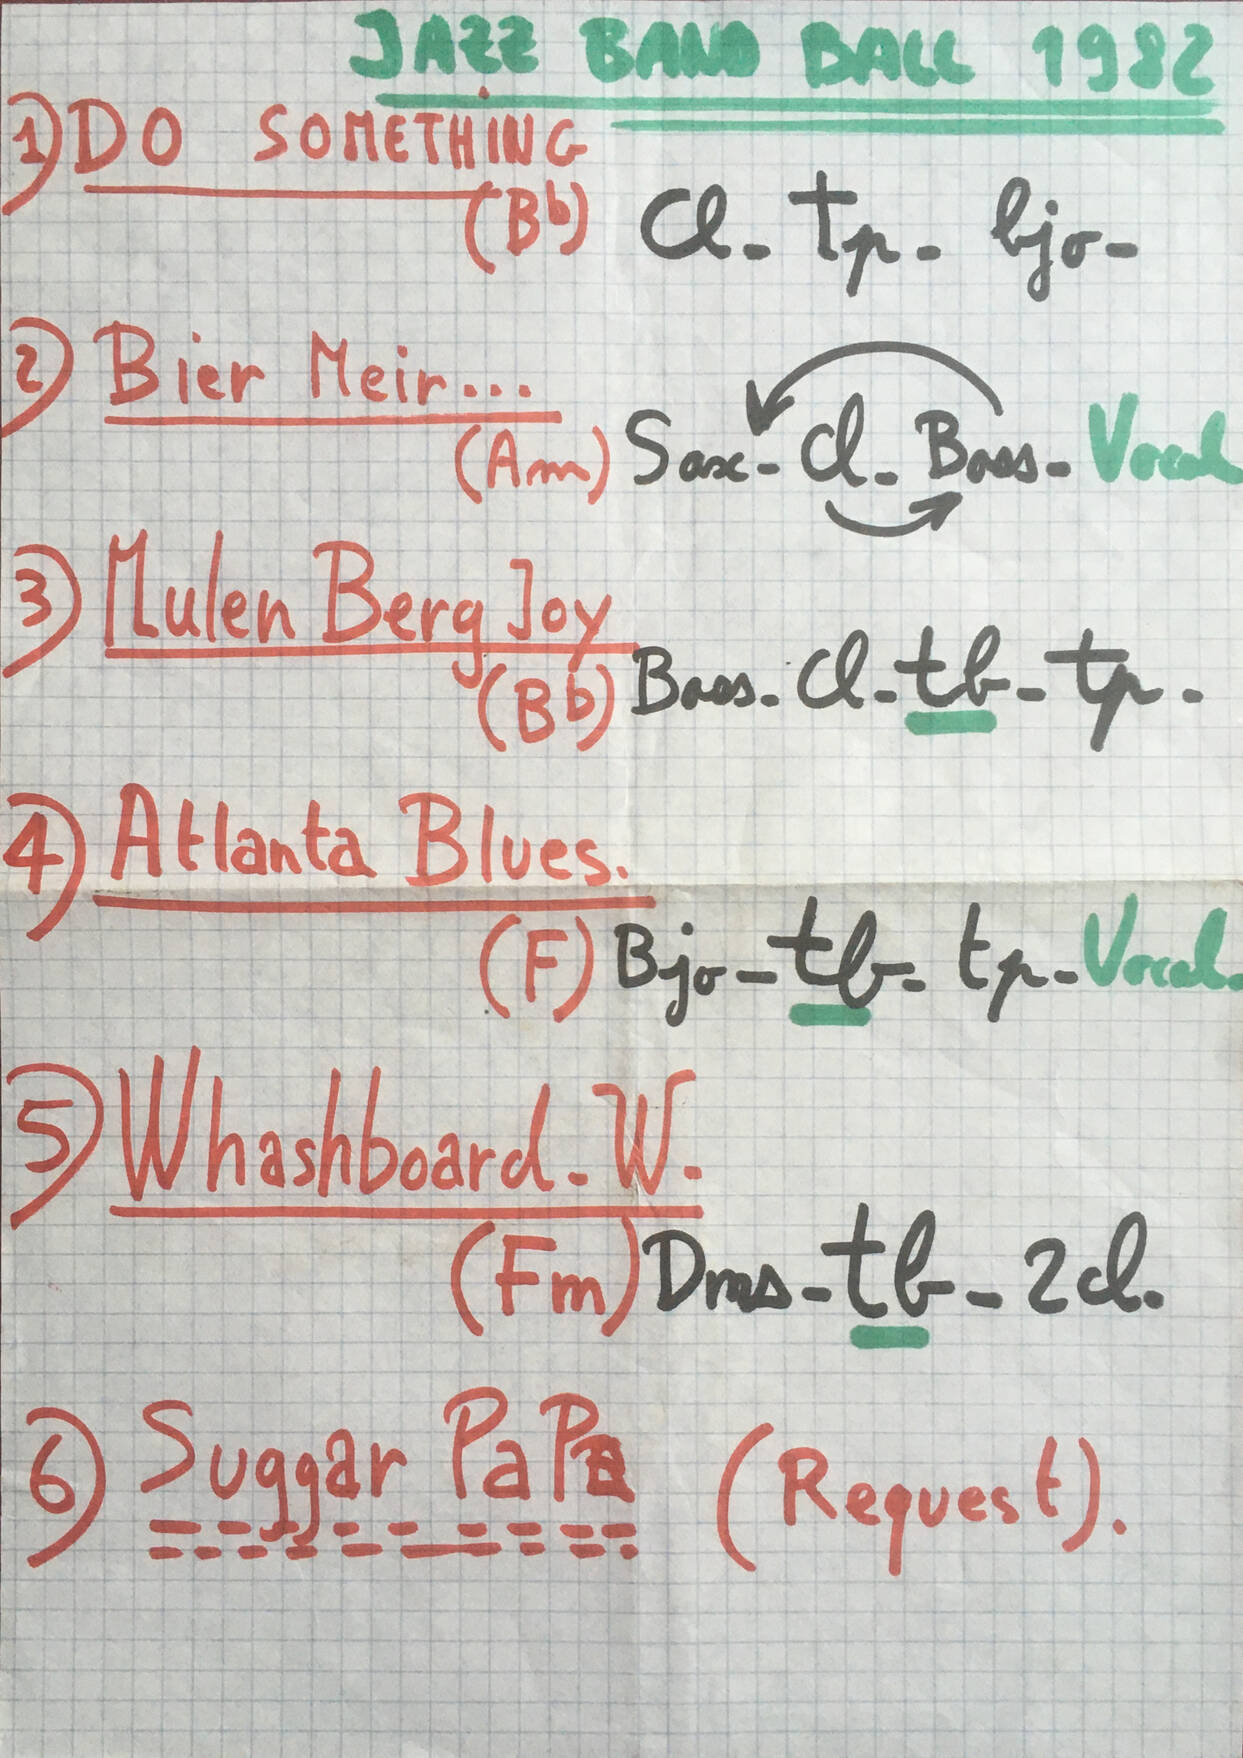 JAZZ BAND BALL 1982
1) DO SOMETHING
(Bb) Cl - tp - bjo -
2) Bier Meir...
(Am) Sax - Cl - Bass - Vocal
3) Mulen Berg Joy
(Bb) Bass - Cl - tb - tp -
4) Atlanta Blues.
(F) Bjo - tb - tp - Vocal.
5) Whashboard - W.
(Fm) Dms - tb - 2 cl.
6) Suggar PaPa (Request).